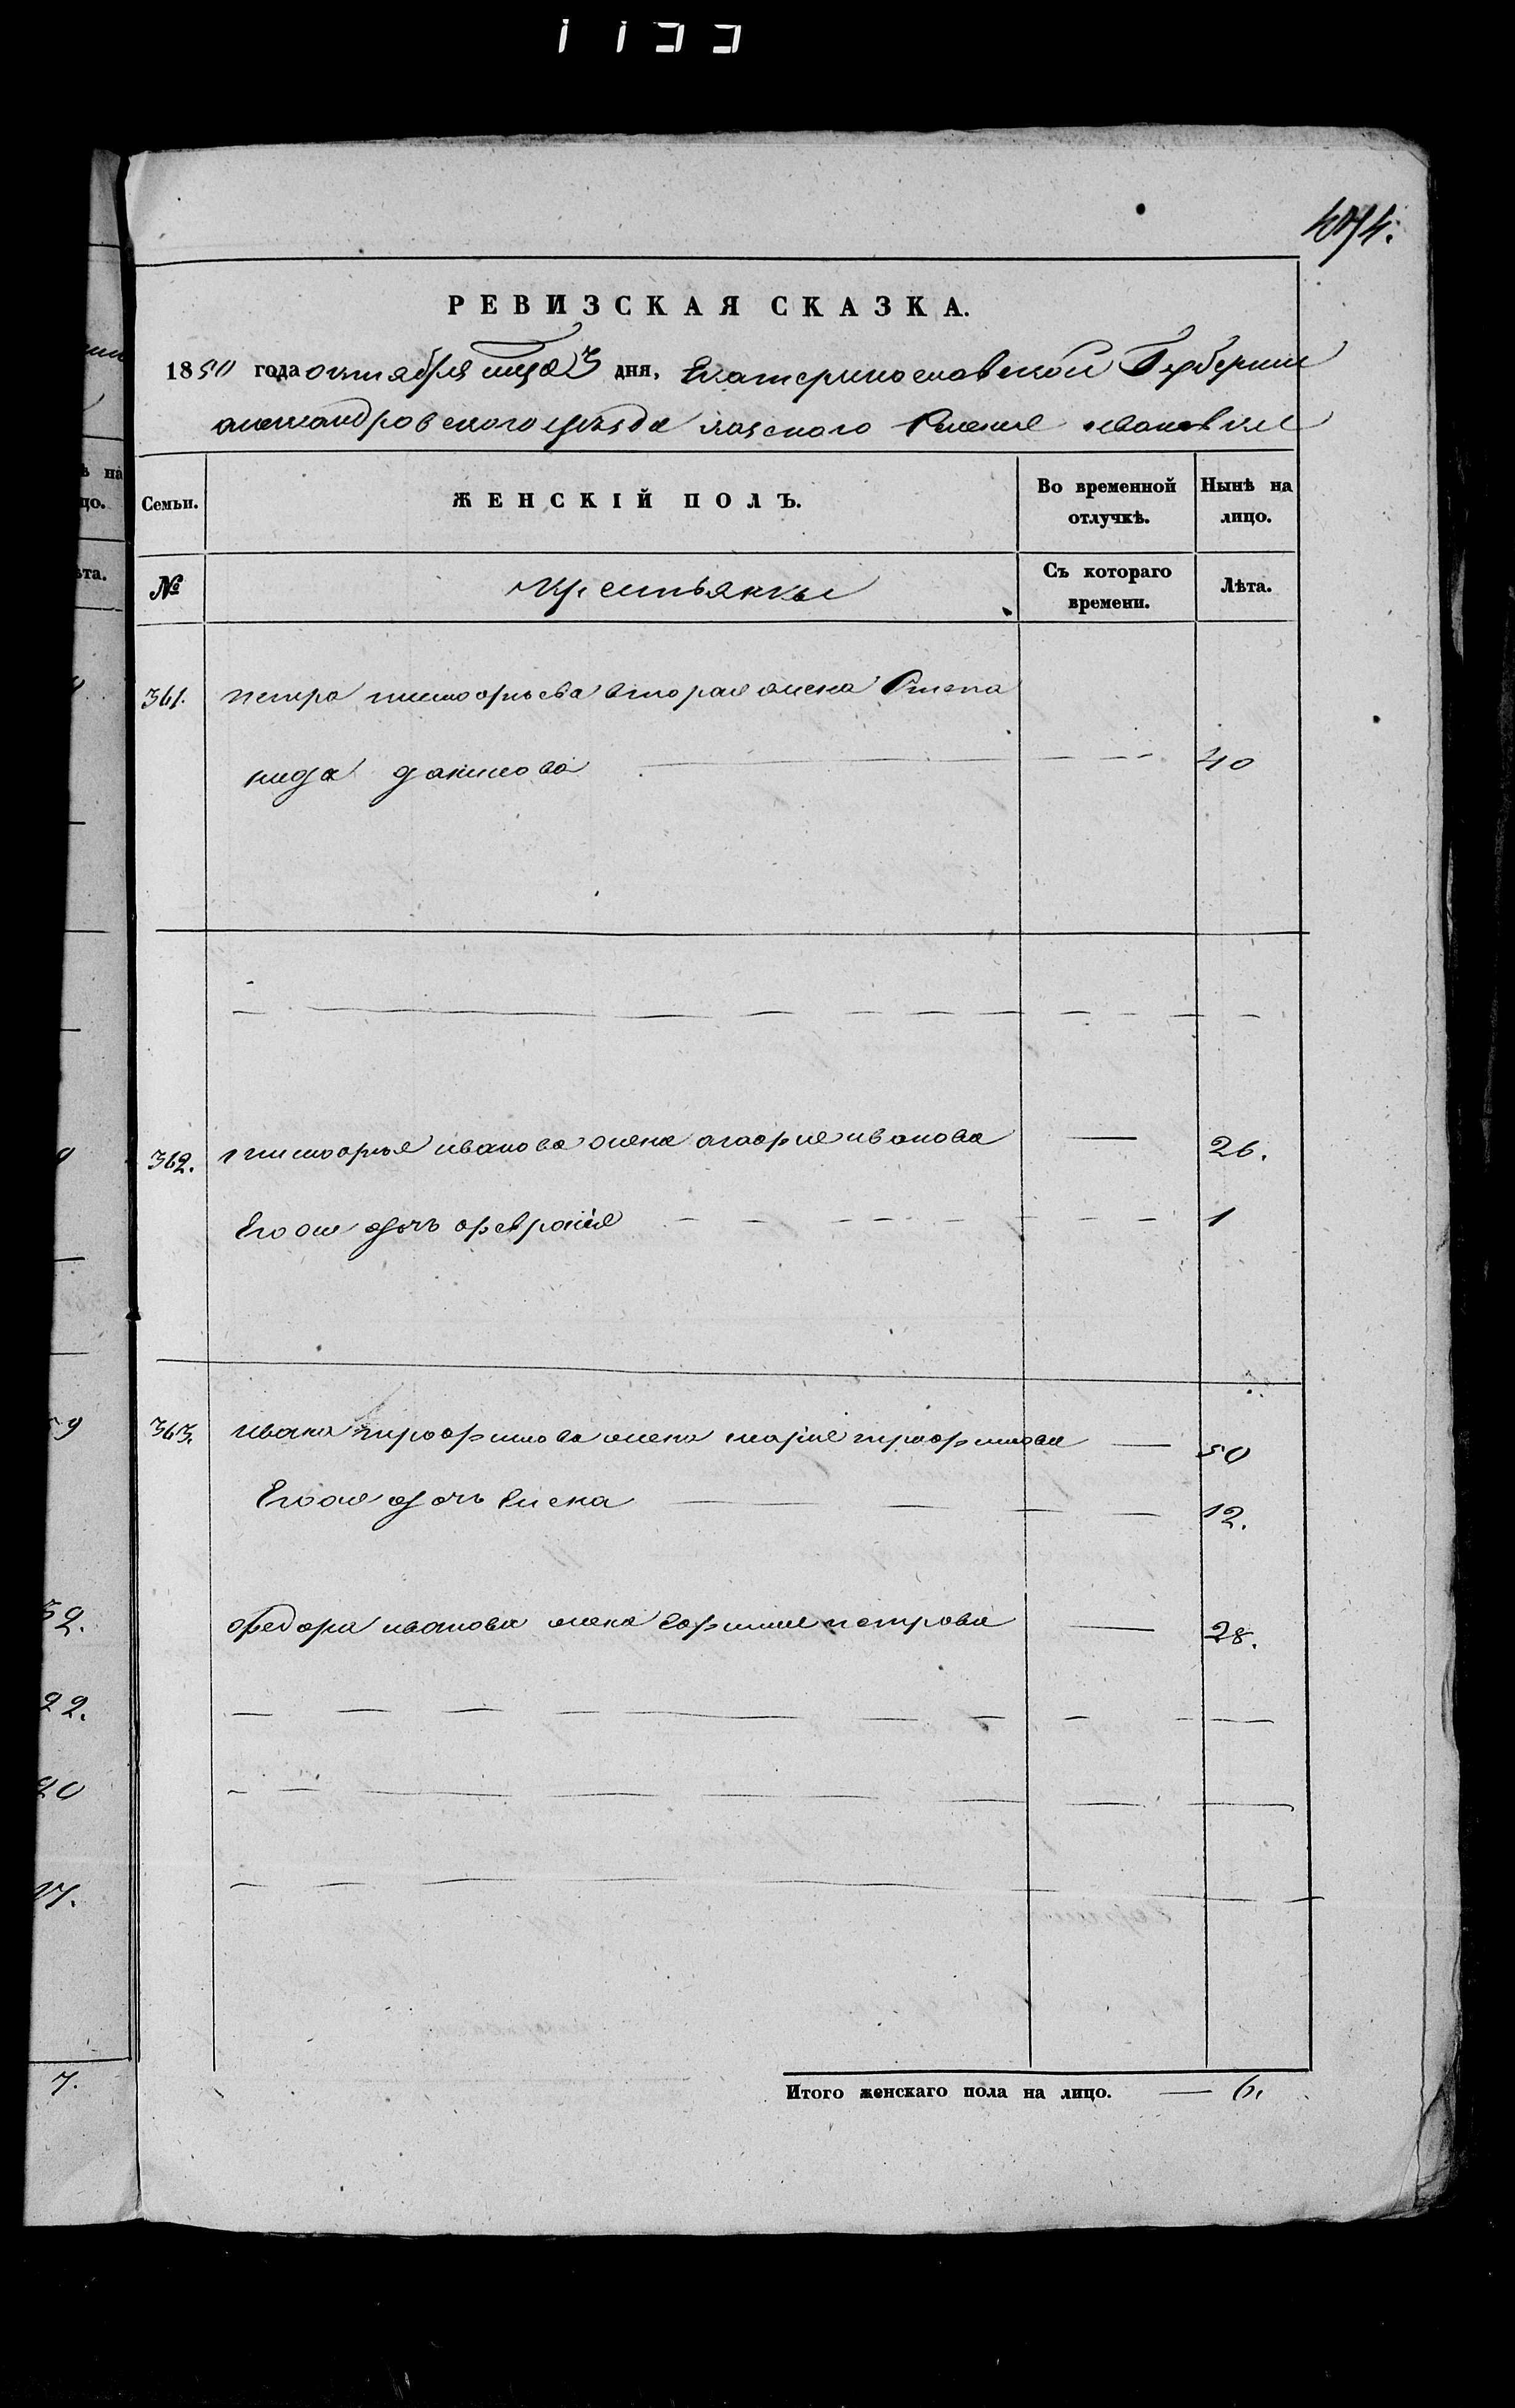 РЕВИЗСКАЯ СКАЗКА.
1850 года октября мца 3 дня, Екатеринославской Губернии
александровского уезда казеного Селения ивановки
Семьи.
ЖЕНСКІЙ ПОЛЪ.
Во временной отлучкѣ.
Нынѣ на лицо.
№
крестьянки
Съ котораго времени.
Лѣта.
361. петра тимофѣева вторая жена Степа
нида якимова 40
362. тимофѣя иванова жена агафия иванова 26.
Его же дочь феврония 1
363. ивана трофимова жена мария трофимова 50
Его же дочь елена 12.
федора иванова жена ефимия петрова 28.
Итого женскаго пола на лицо. 6.
на
цо.
ѣта.
22.
20
17.
7.